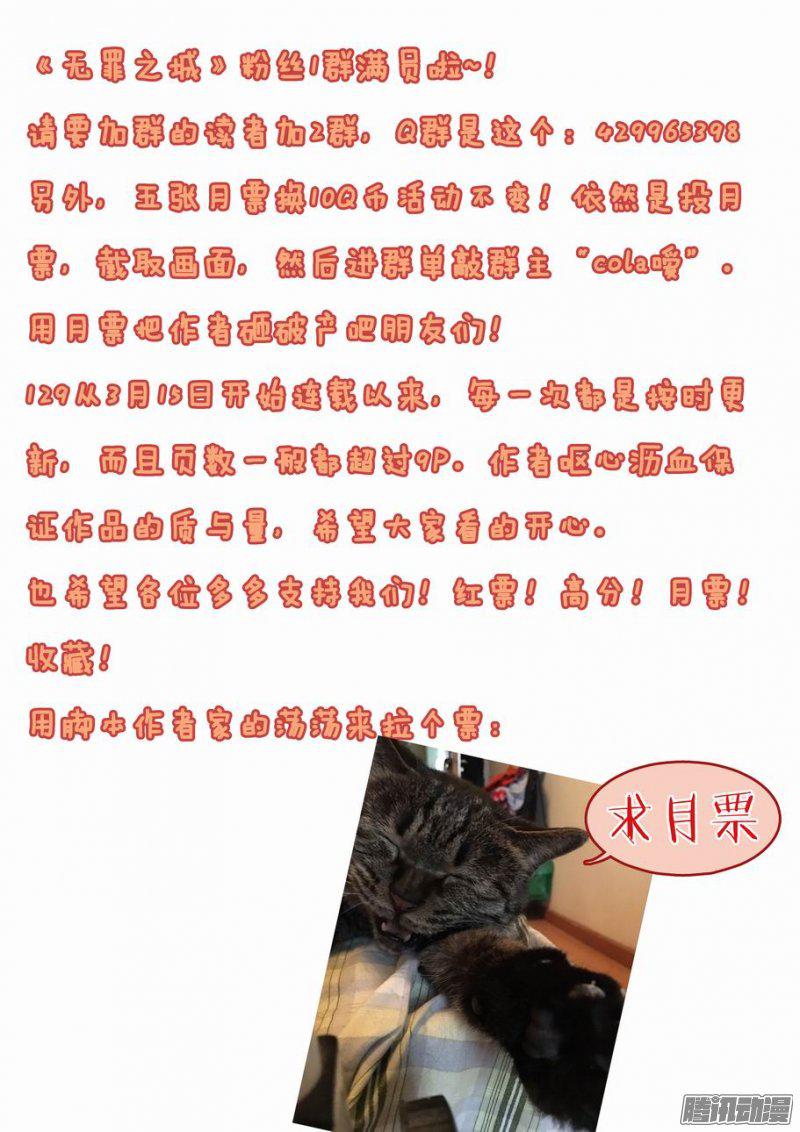 《无罪之城》粉丝1群满员啦~!
请要加群的读者加2群, Q群是这个: 429965398
另外, 五张月票换10Q币活动不变! 依然是投月
票, 截取画面, 然后进群单敲群主“cola嗳”。
用月票把作者砸破产吧朋友们!
129从3月15日开始连载以来, 每一次都是按时更
新, 而且页数一般都超过9P。作者呕心沥血保
证作品的质与量, 希望大家看的开心。
也希望各位多多支持我们! 红票! 高分! 月票!
收藏!
用脚本作者家的荡荡来拉个票:
求月票
腾讯动漫